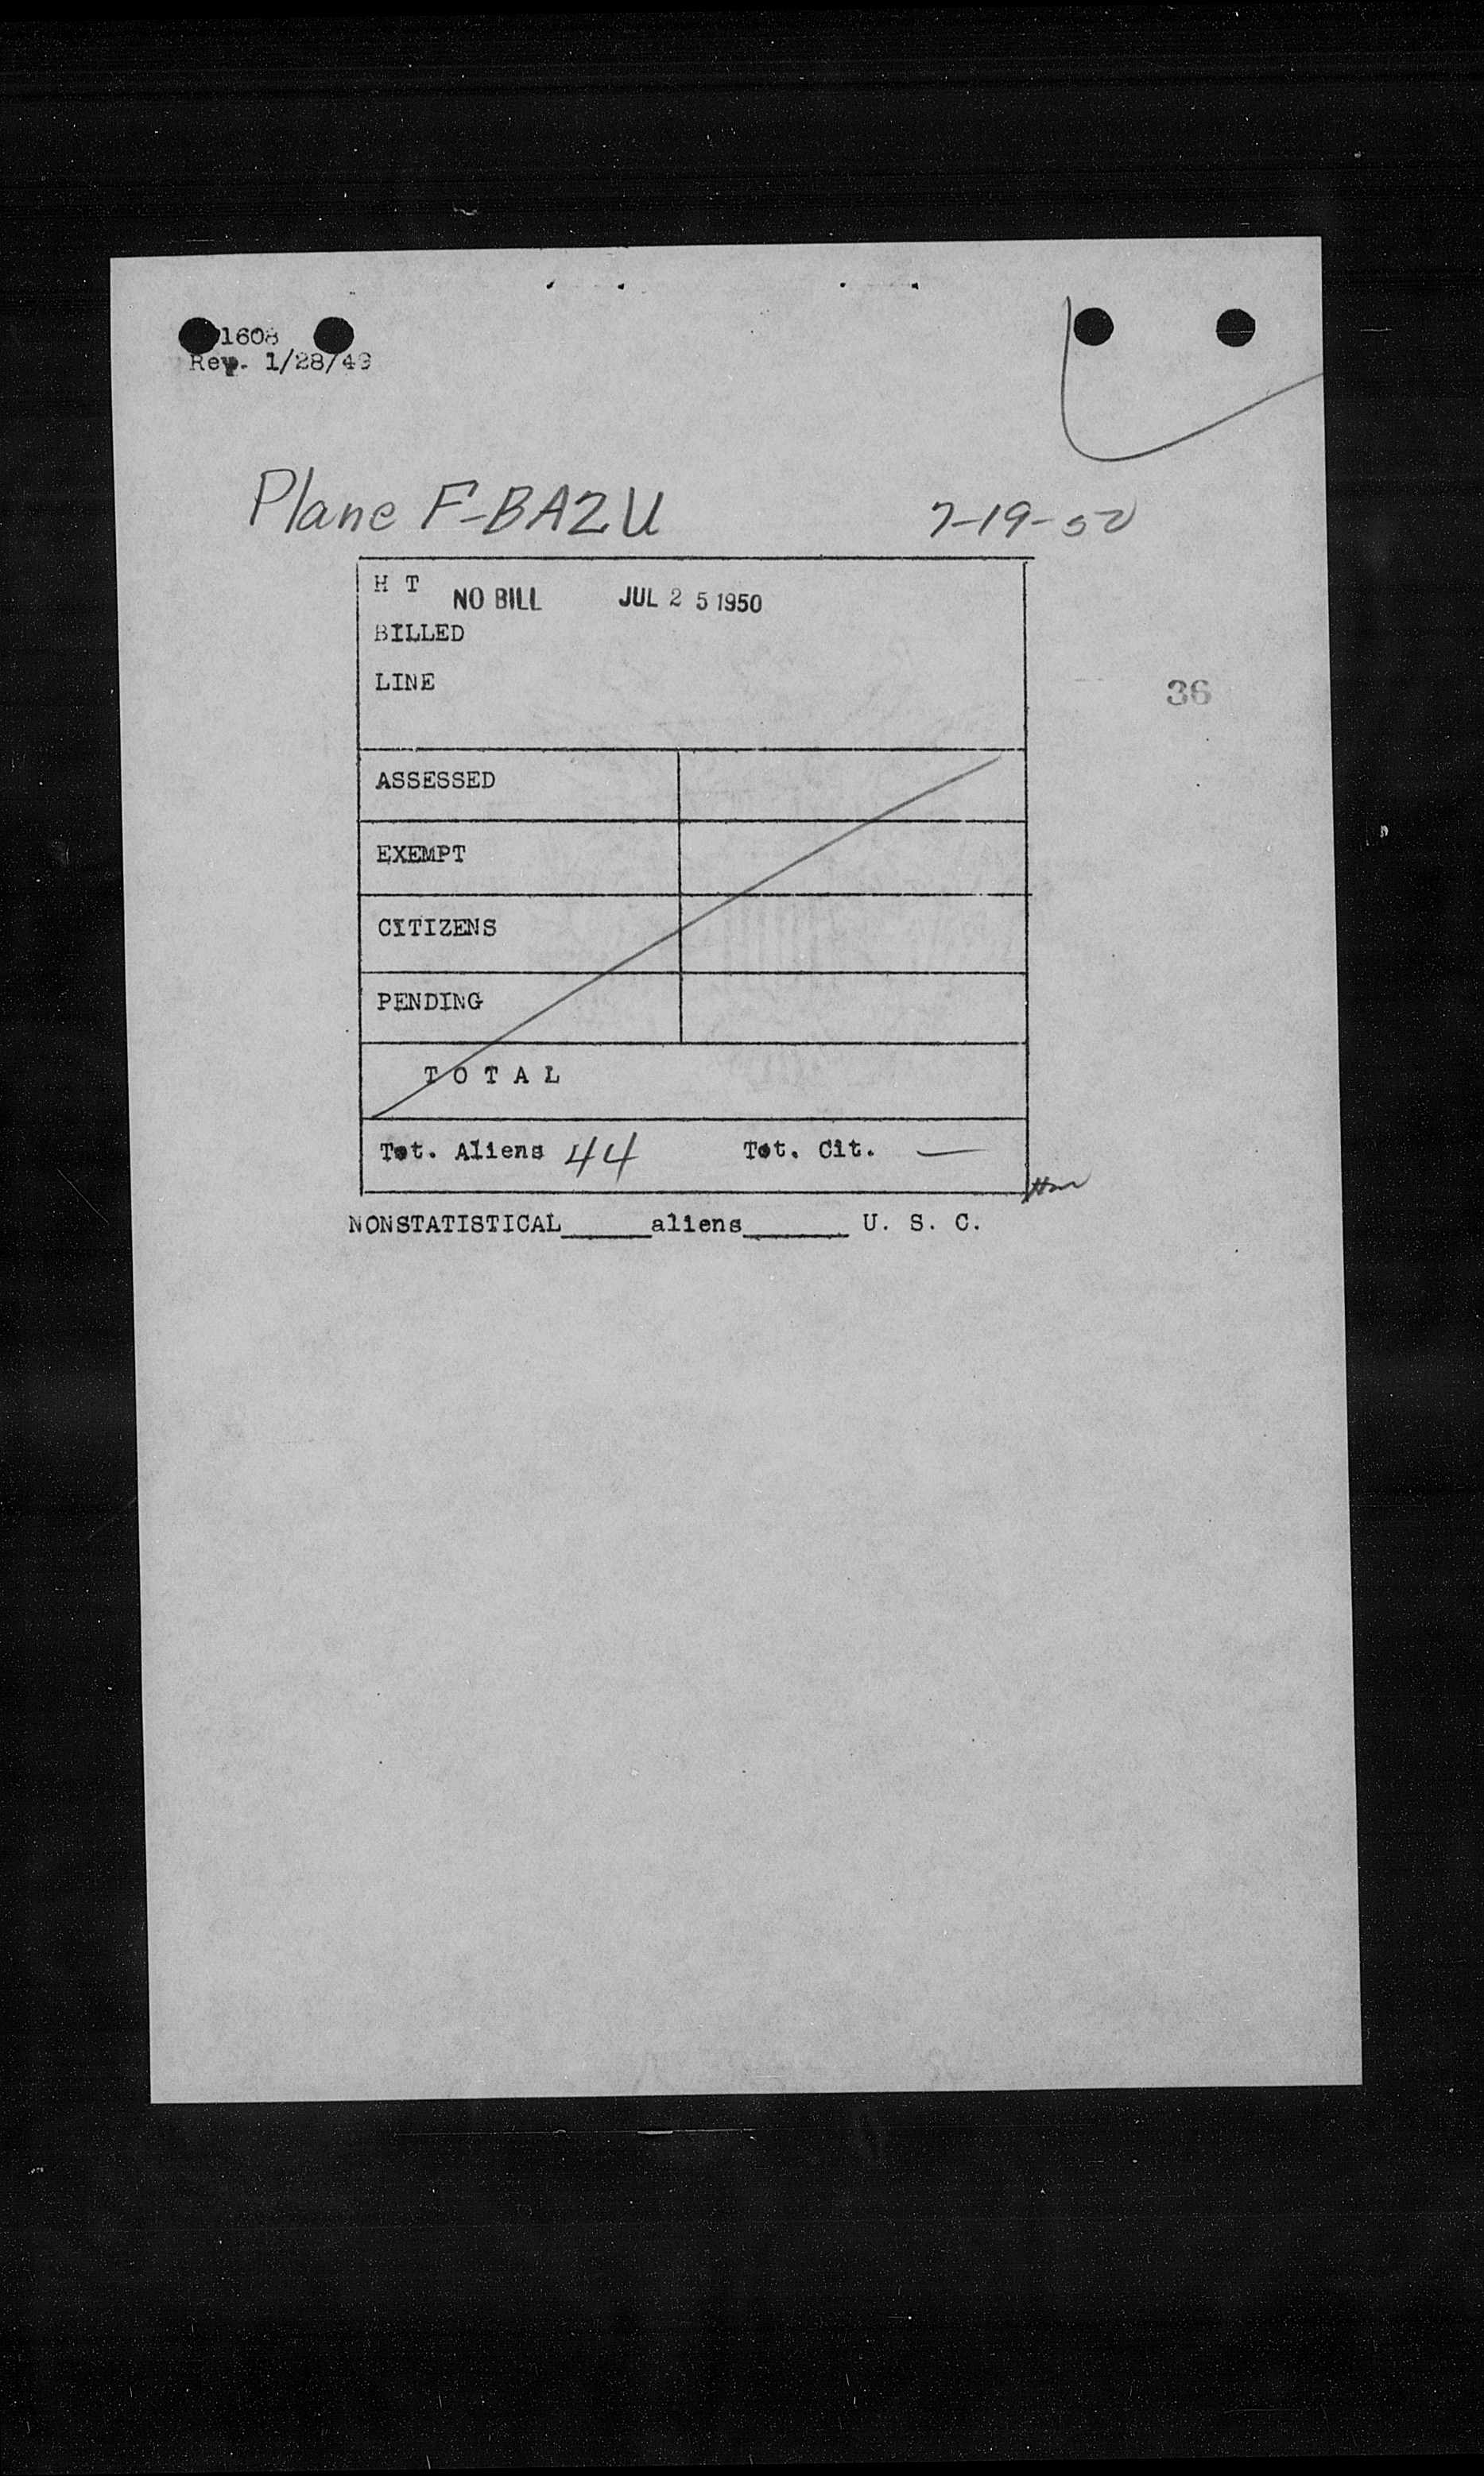 1608
Rev. 1/28/49
Plane F-BA2U 7-19-50
H T NO BILL JUL 25 1950
BILLED
LINE
36
ASSESSED
EXEMPT
CITIZENS
PENDING
TOTAL
Tot. Aliens 44 Tot. Cit. —
NONSTATISTICAL_____aliens______ U. S. C.